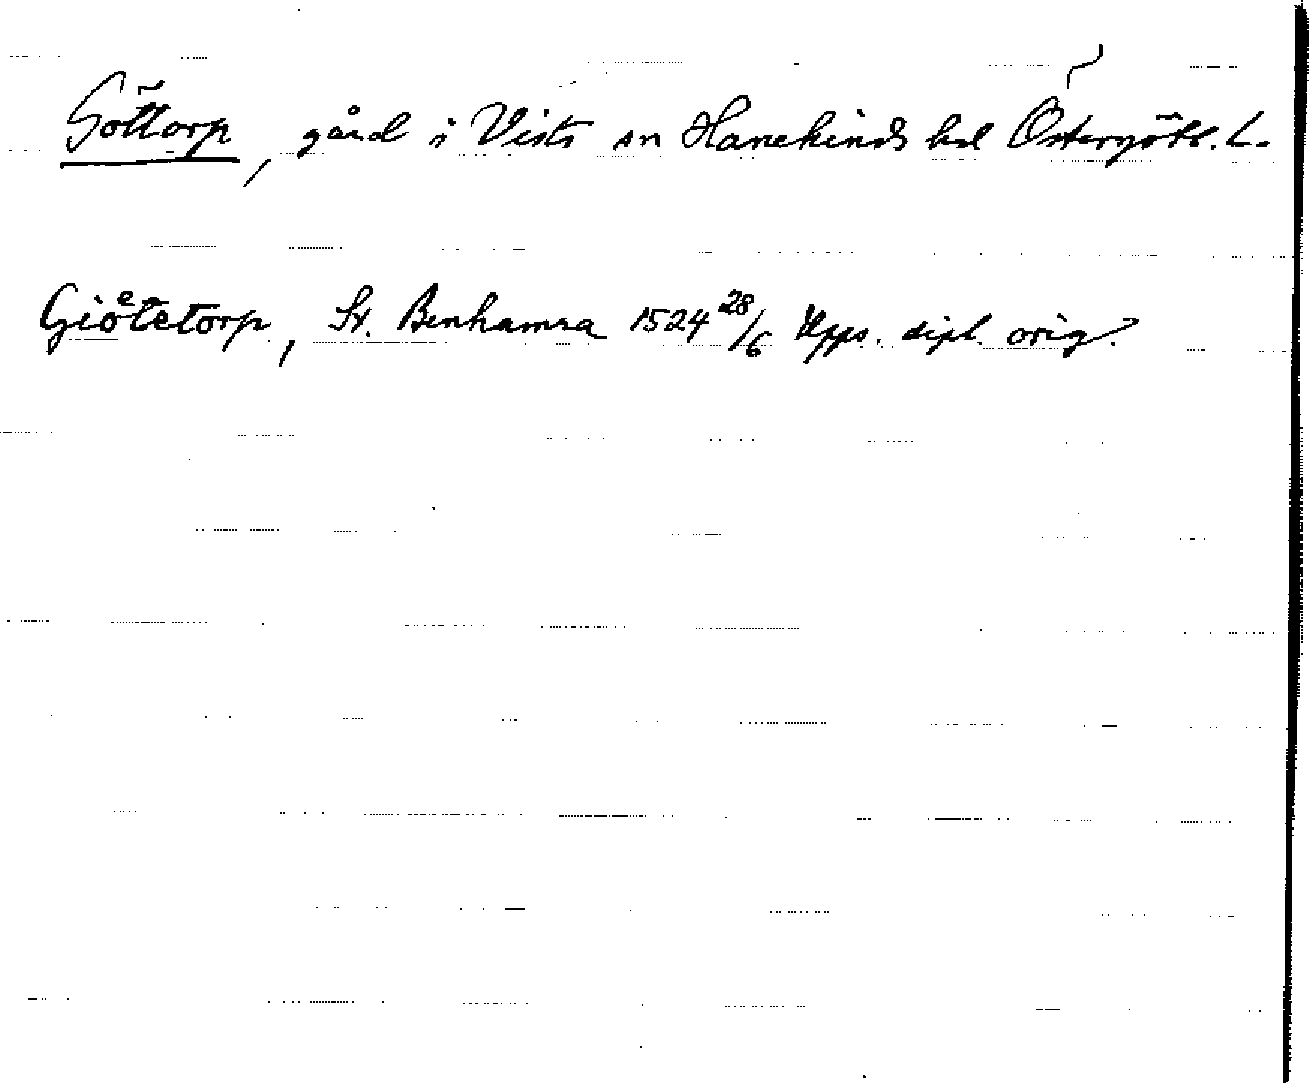 Göttorp, gård i Vists sn Hanekinds hd Östergötl. L.
Gioͤtetorp, St. Benhamra 1524 28/6 Upps. dipl. orig.